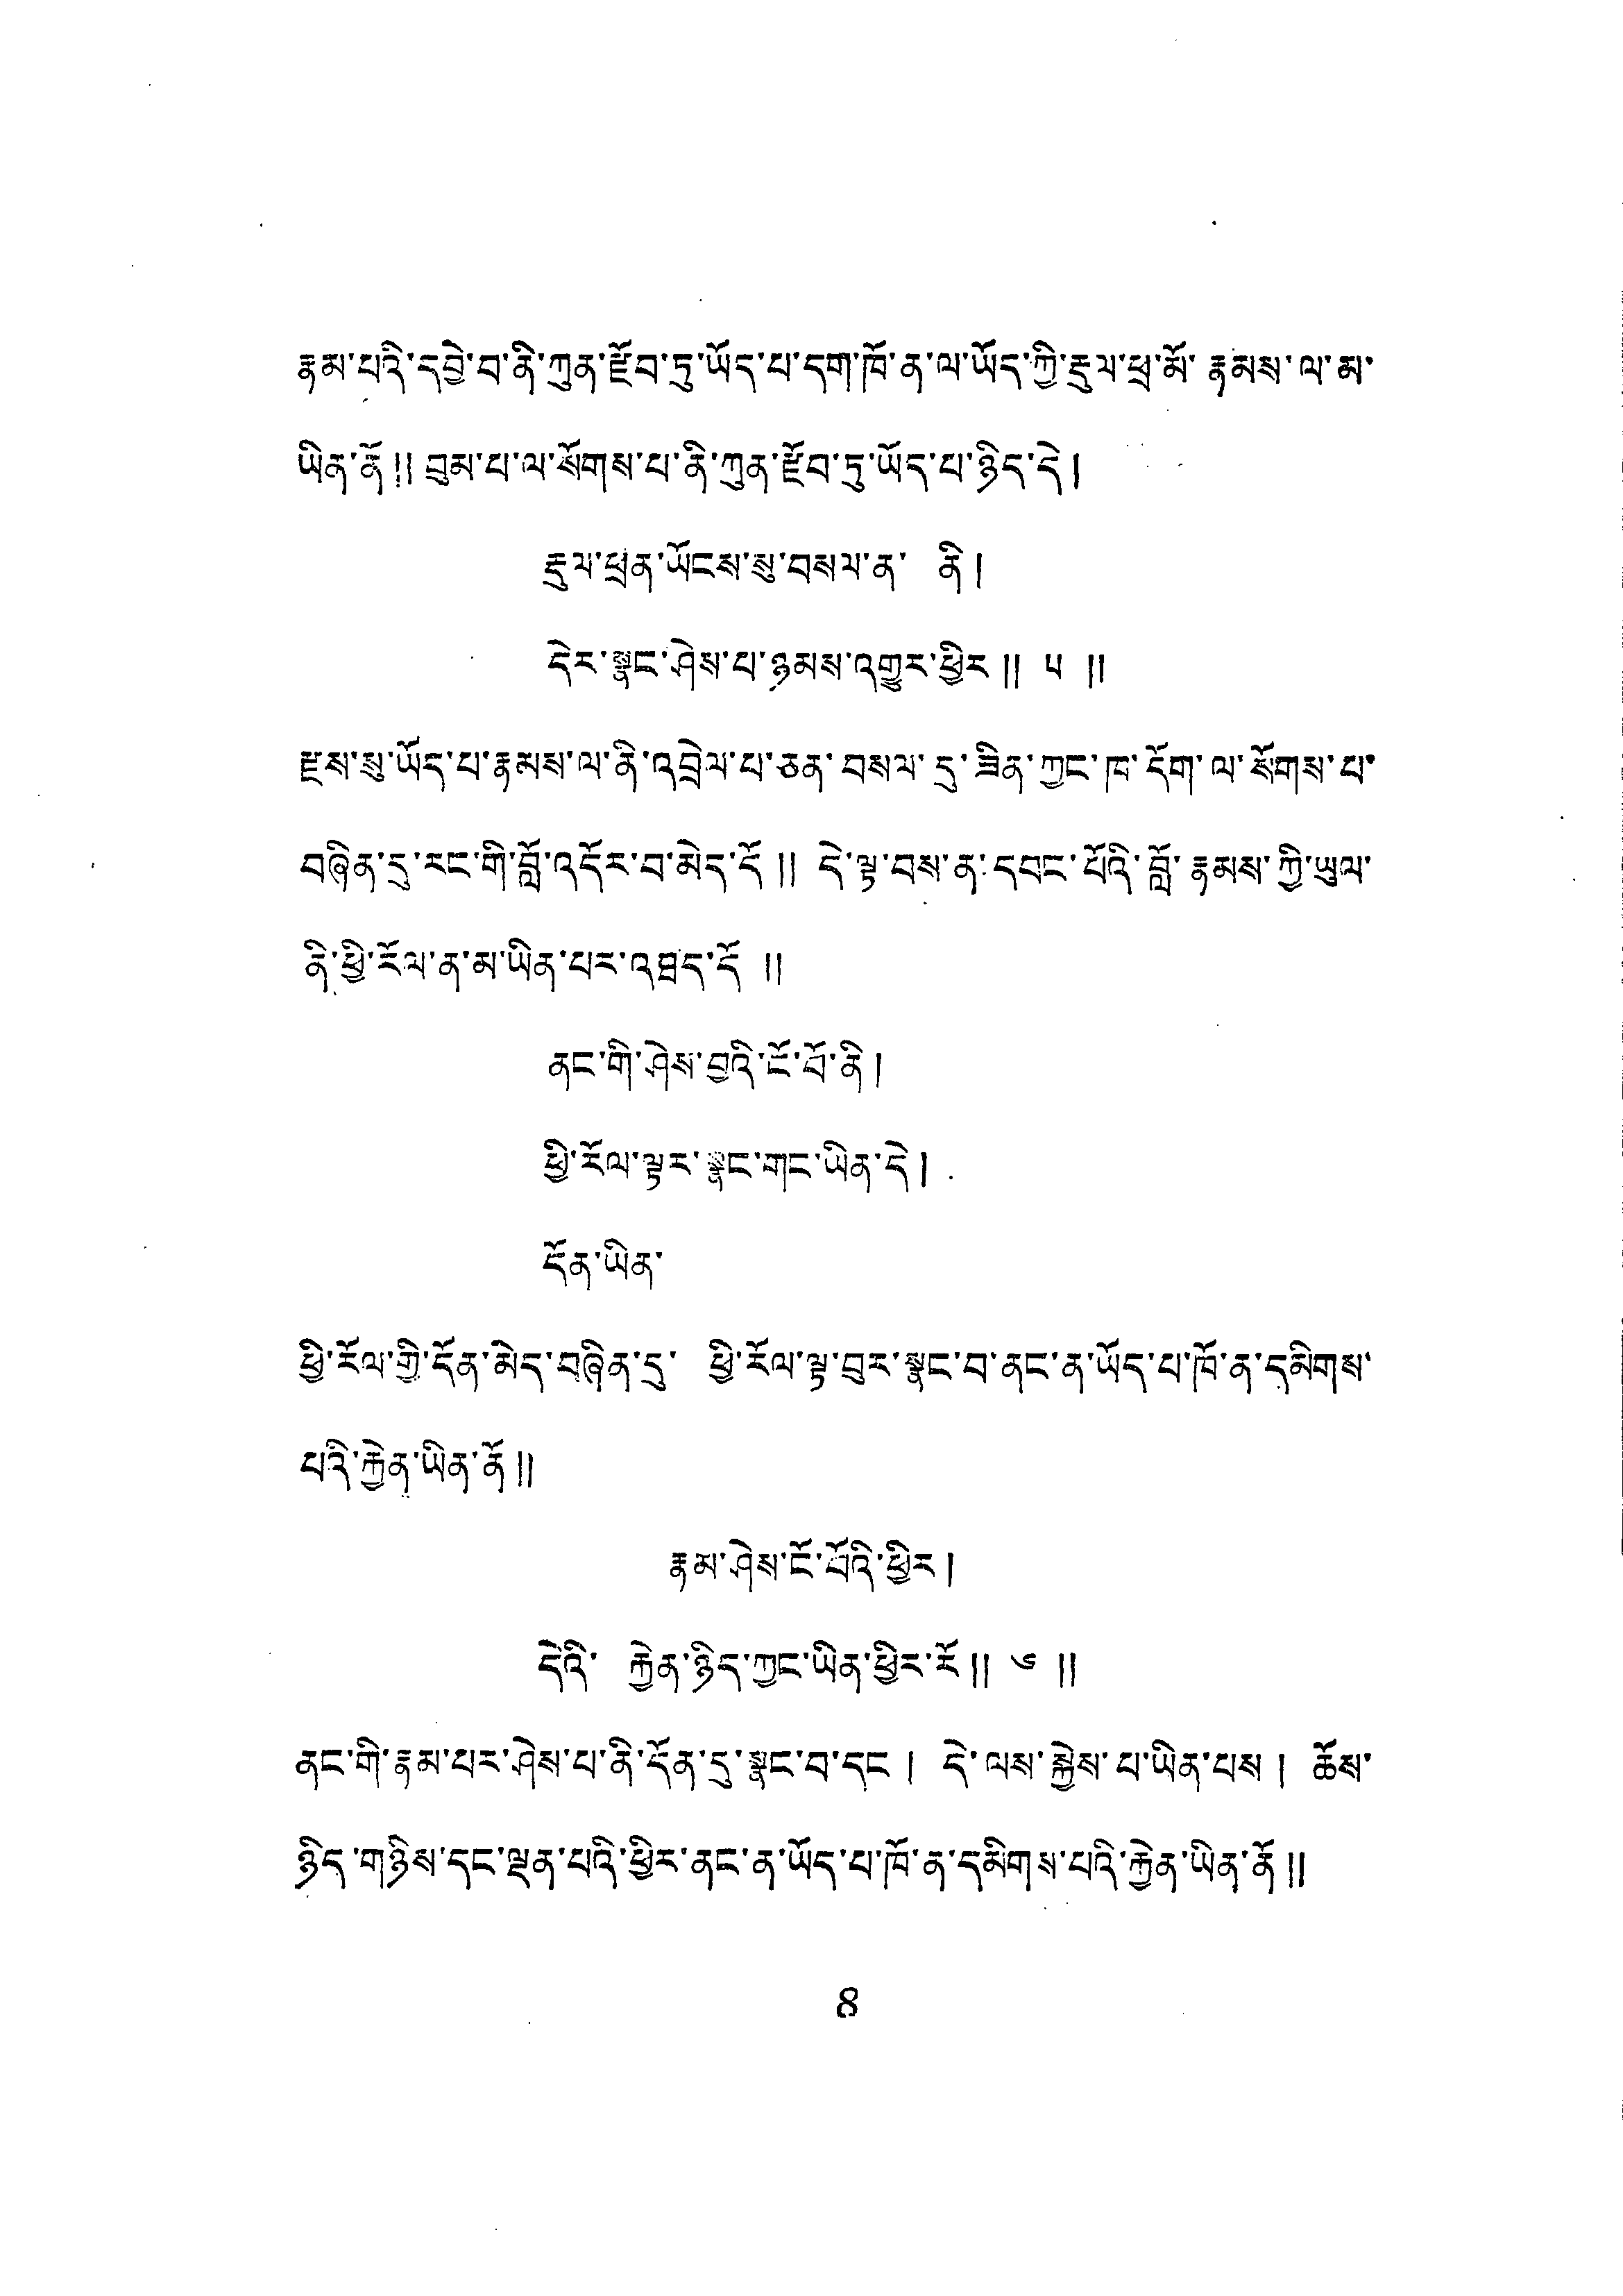 རྣམ་པའི་དབྱེ་བ་ནི་ཀུན་རྫོབ་ཏུ་ཡོད་པ་དག་ཁོ་ན་ལ་ཡོད་ཀྱི་རྡུལ་ཕྲ་མོ་ རྣམས་ལ་མ་
ཡིན་ནོ།། བུམ་པ་ལ་སོགས་པ་ནི་ཀུན་རྫོབ་ཏུ་ཡོད་པ་ཉིད་དེ།
རྡུལ་ཕྲན་ཡོངས་སུ་བསལ་ན་ ནི།
དེར་སྣང་ཤེས་པ་ཉམས་འགྱུར་ཕྱིར།། ༥ །།
རྫས་སུ་ཡོད་པ་རྣམས་ལ་ནི་འབྲེལ་པ་ཅན་བསལ་དུ་ཟིན་ཀྱང་ཁ་དོག་ལ་སོགས་པ་
བཞིན་དུ་རང་གི་བློ་འདོར་བ་མེད་དོ།། དེ་ལྟ་བས་ན་དབང་པོའི་བློ་རྣམས་ཀྱི་ཡུལ་
ནི་ཕྱི་རོལ་ན་མ་ཡིན་པར་འཐད་དོ །།
ནང་གི་ཤེས་བྱའི་ངོ་བོ་ནི།
ཕྱི་རོལ་ལྟར་སྣང་གང་ཡིན་དེ།
དོན་ཡིན་
ཕྱི་རོལ་གྱི་དོན་མེད་བཞིན་དུ་ ཕྱི་རོལ་ལྟ་བུར་སྣང་བ་ནང་ན་ཡོད་པ་ཁོ་ན་དམིགས་
པའི་རྐྱེན་ཡིན་ནོ།།
རྣམ་ཤེས་ངོ་བོའི་ཕྱིར།
དེའི་ རྐྱེན་ཉིད་ཀྱང་ཡིན་ཕྱིར་རོ།། ༦ །།
ནང་གི་རྣམ་པར་ཤེས་པ་ནི་དོན་དུ་སྣང་བ་དང། དེ་ལས་སྐྱེས་པ་ཡིན་པས། ཆོས་
ཉིད་གཉིས་དང་ལྡན་པའི་ཕྱིར་ནང་ན་ཡོད་པ་ཁོ་ན་དམིགས་པའི་རྐྱེན་ཡིན་ནོ།།
8